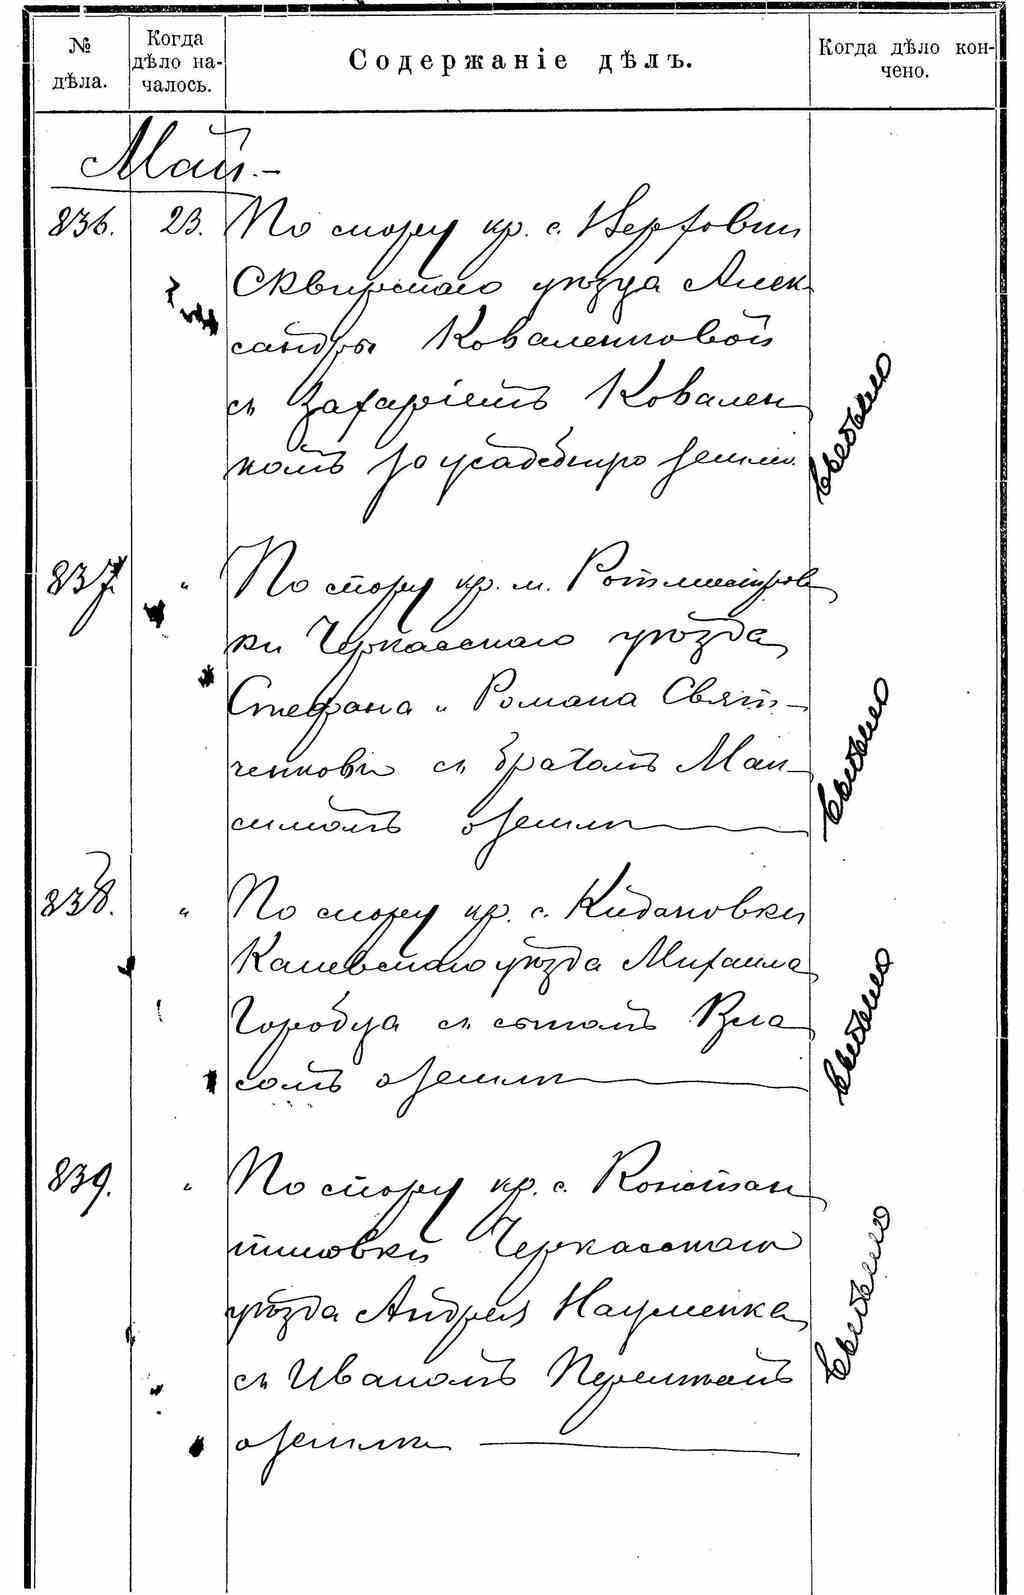 № дѣла.
Когда дѣло на-
чалось.
Содержаніе дѣлъ.
Когда дѣло кон-
чено.
Май.-
836. 23. По спору кр. с.
Сквирскаго уѣзда Алек
сандры Коваленковой
съ Захаріемъ Ковален
комъ за усадебную землю.
837. " По спору кр. м. Ротмистров
ки Черкасскаго уѣзда
Стефана и Романа Свят-
ченковъ съ братомъ Мак-
симомъ о землѣ
838. " По спору кр. с. Кидановки
Каневскаго уѣзда Михаила
Горобца съ сыномъ Вла
сомъ о землѣ
839. " По спору кр. с. Констан
тиновки Черкасскаго
уѣзда Андрея Науменка
съ Иваномъ
о землѣ